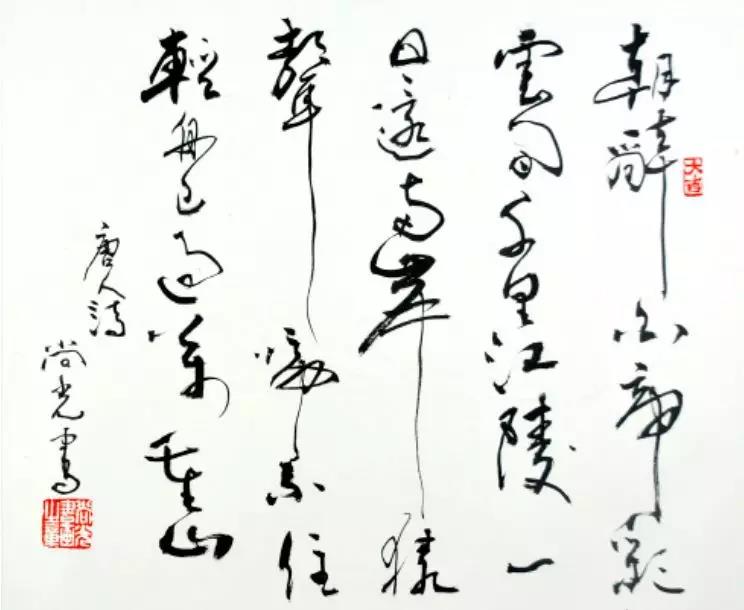 朝辭白帝彩
雲間千里江陵一
日還兩岸猿
聲啼不住
輕舟已過萬重山
唐人詩
尚光書